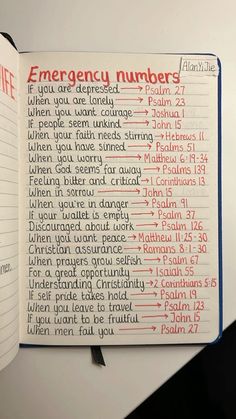 IFE
AlanYiJie
Emergency numbers
If you are depressed → Psalm 27
When you are lonely → Psalm 23
When you want courage → Joshua 1
If people seem unkind → John 15
When your faith needs stirring → Hebrews 11
When you have sinned → Psalms 51
When you worry → Matthew 6:19-34
When God seems far away → Psalms 139
Feeling bitter and critical → 1 Corinthians 13
When in sorrow → John 15
When you're in danger → Psalm 91
If your wallet is empty → Psalm 37
Discouraged about work → Psalm 126
When you want peace → Matthew 11:25-30
Christian assurance → Romans 8:1-30
When prayers grow selfish → Psalm 67
For a great opportunity → Isaiah 55
Understanding Christianity → 2 Corinthians 5:15
If self pride takes hold → Psalm 19
When you leave to travel → Psalm 123
If you want to be fruitful → John 15
When men fail you → Psalm 27